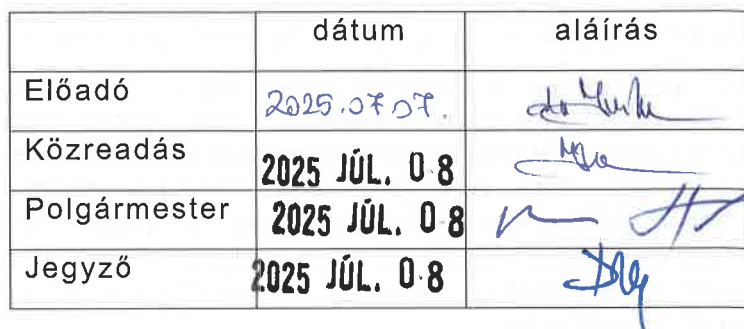 dátum aláírás
Előadó 2025.07.07.
Közreadás 2025 JÚL. 08
Polgármester 2025 JÚL. 08
Jegyző 2025 JÚL. 08